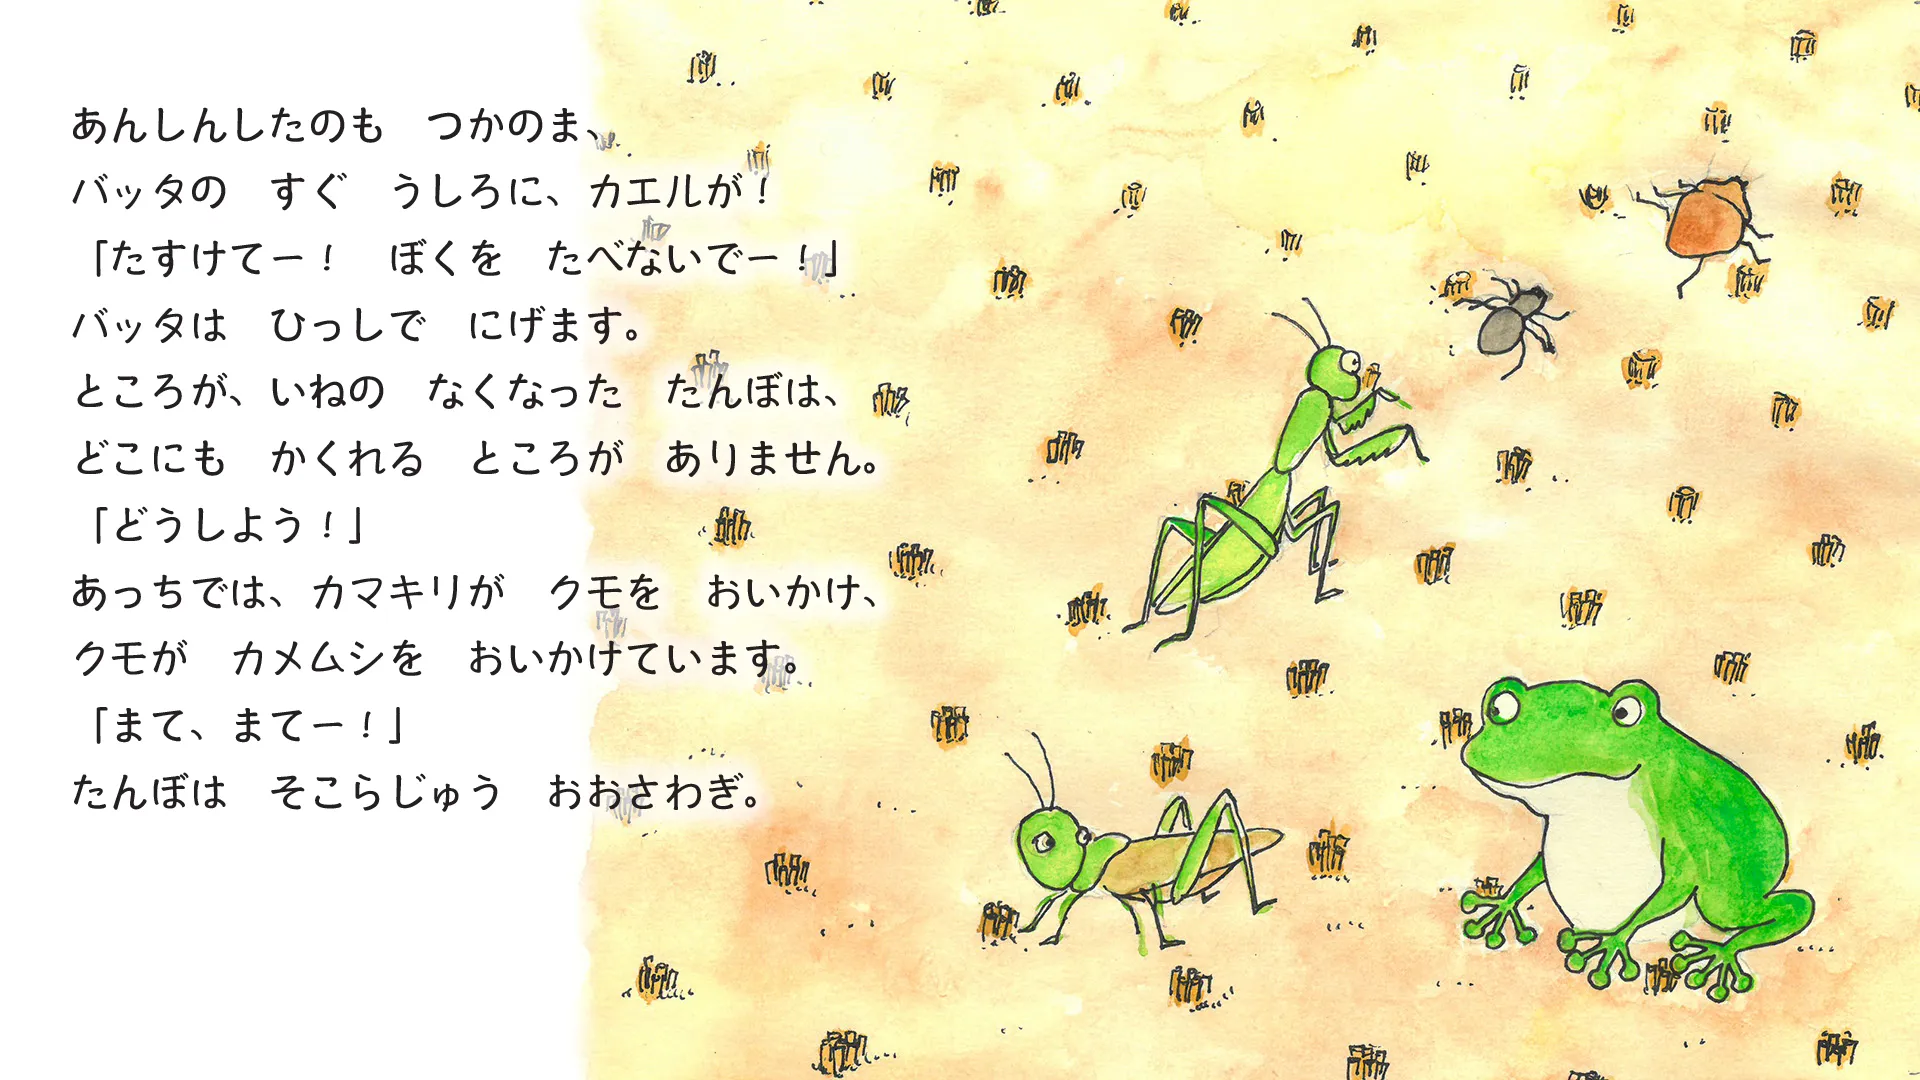 あんしんしたのも　つかのま、
バッタの　すぐ　うしろに、カエルが！
「たすけてー！　ぼくを　たべないでー！」
バッタは　ひっしで　にげます。
ところが、いねの　なくなった　たんぼは、
どこにも　かくれる　ところが　ありません。
「どうしよう！」
あっちでは、カマキリが　クモを　おいかけ、
クモが　カメムシを　おいかけています。
「まて、まてー！」
たんぼは　そこらじゅう　おおさわぎ。